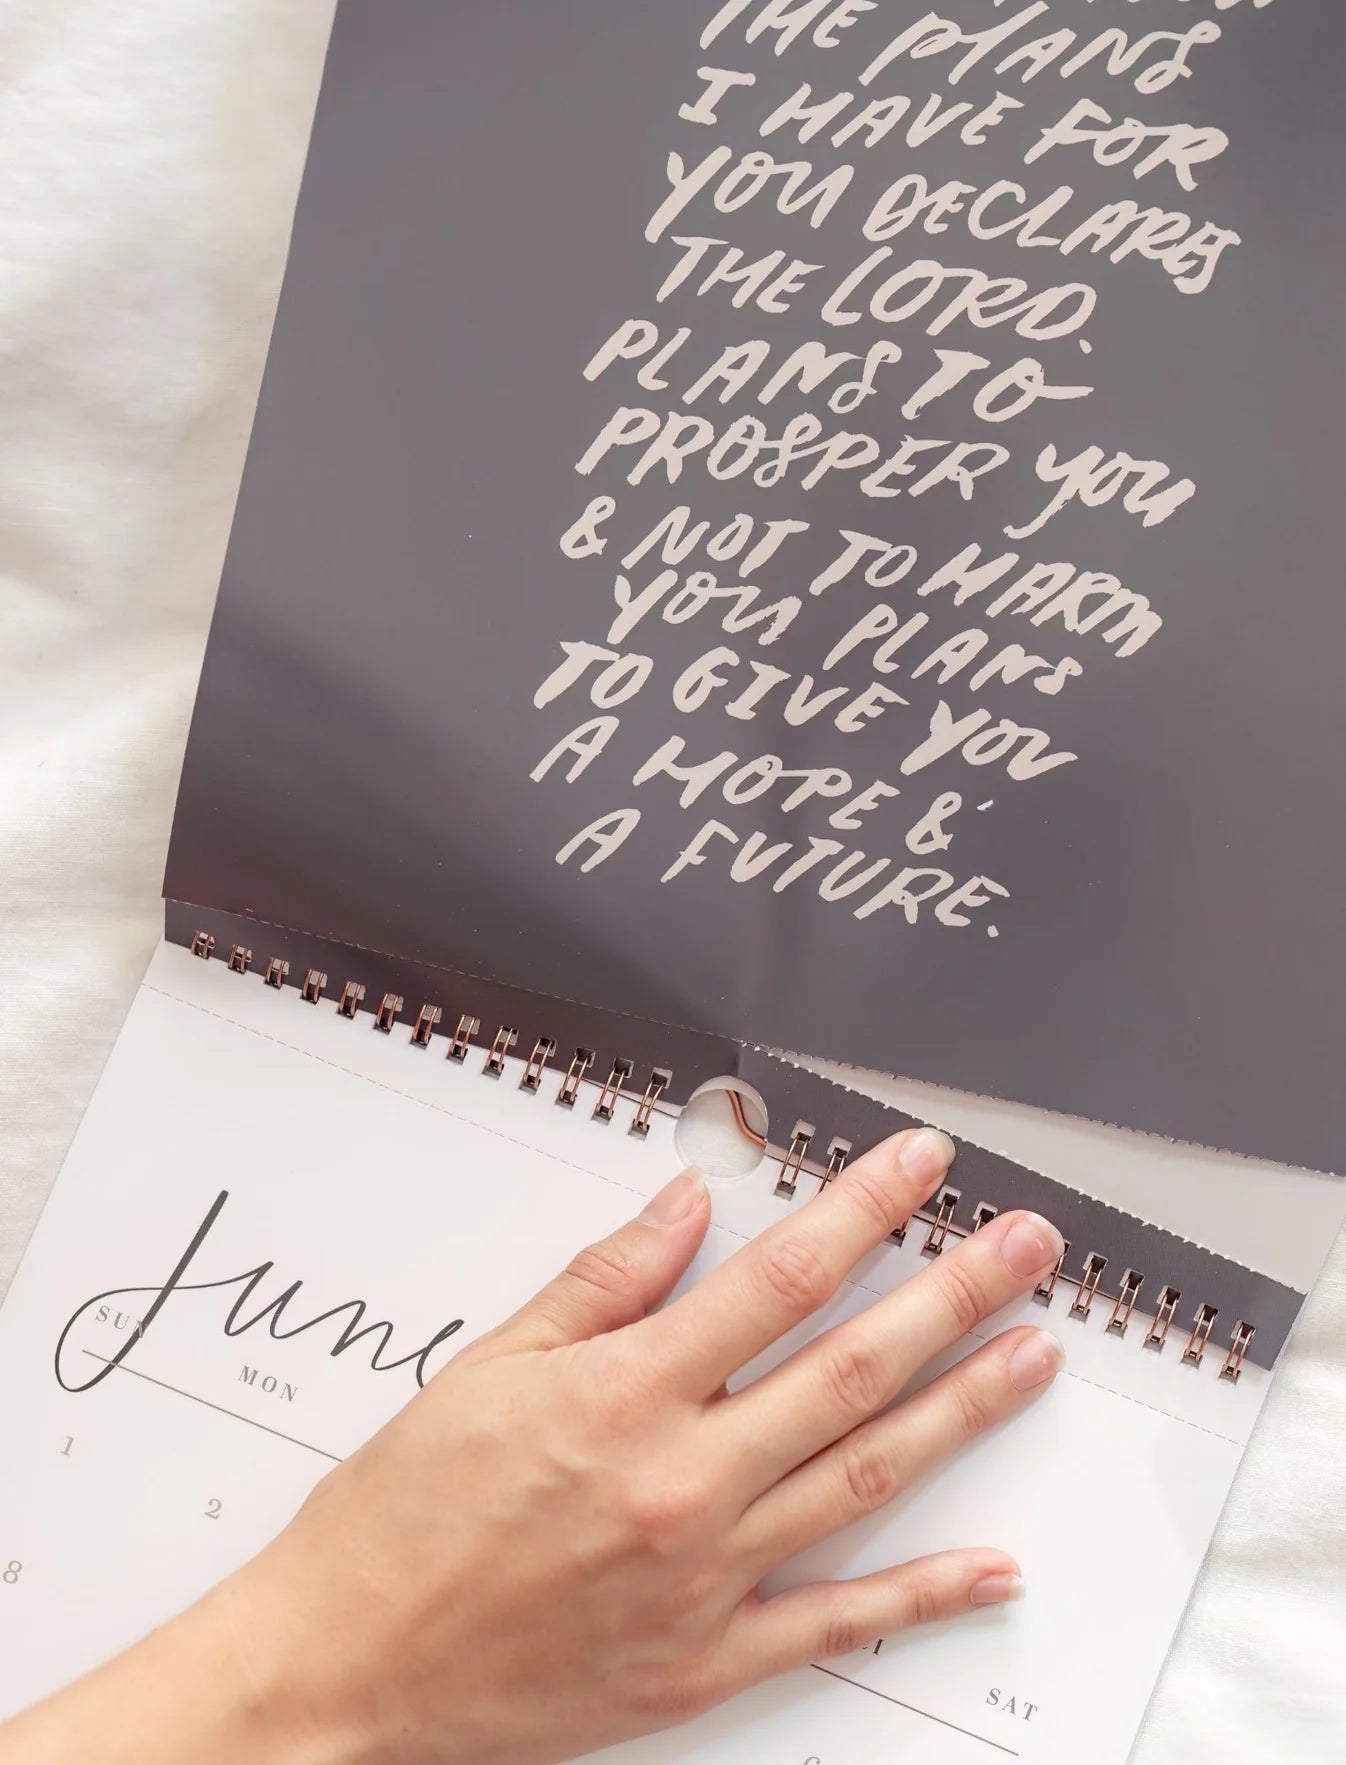 THE PLANS
I HAVE FOR
YOU DECLARES
THE LORD.
PLANS TO
PROSPER YOU
& NOT TO HARM
YOU PLANS
TO GIVE YOU
A HOPE &
A FUTURE.
June
SUN
MON
1
2
8
SAT